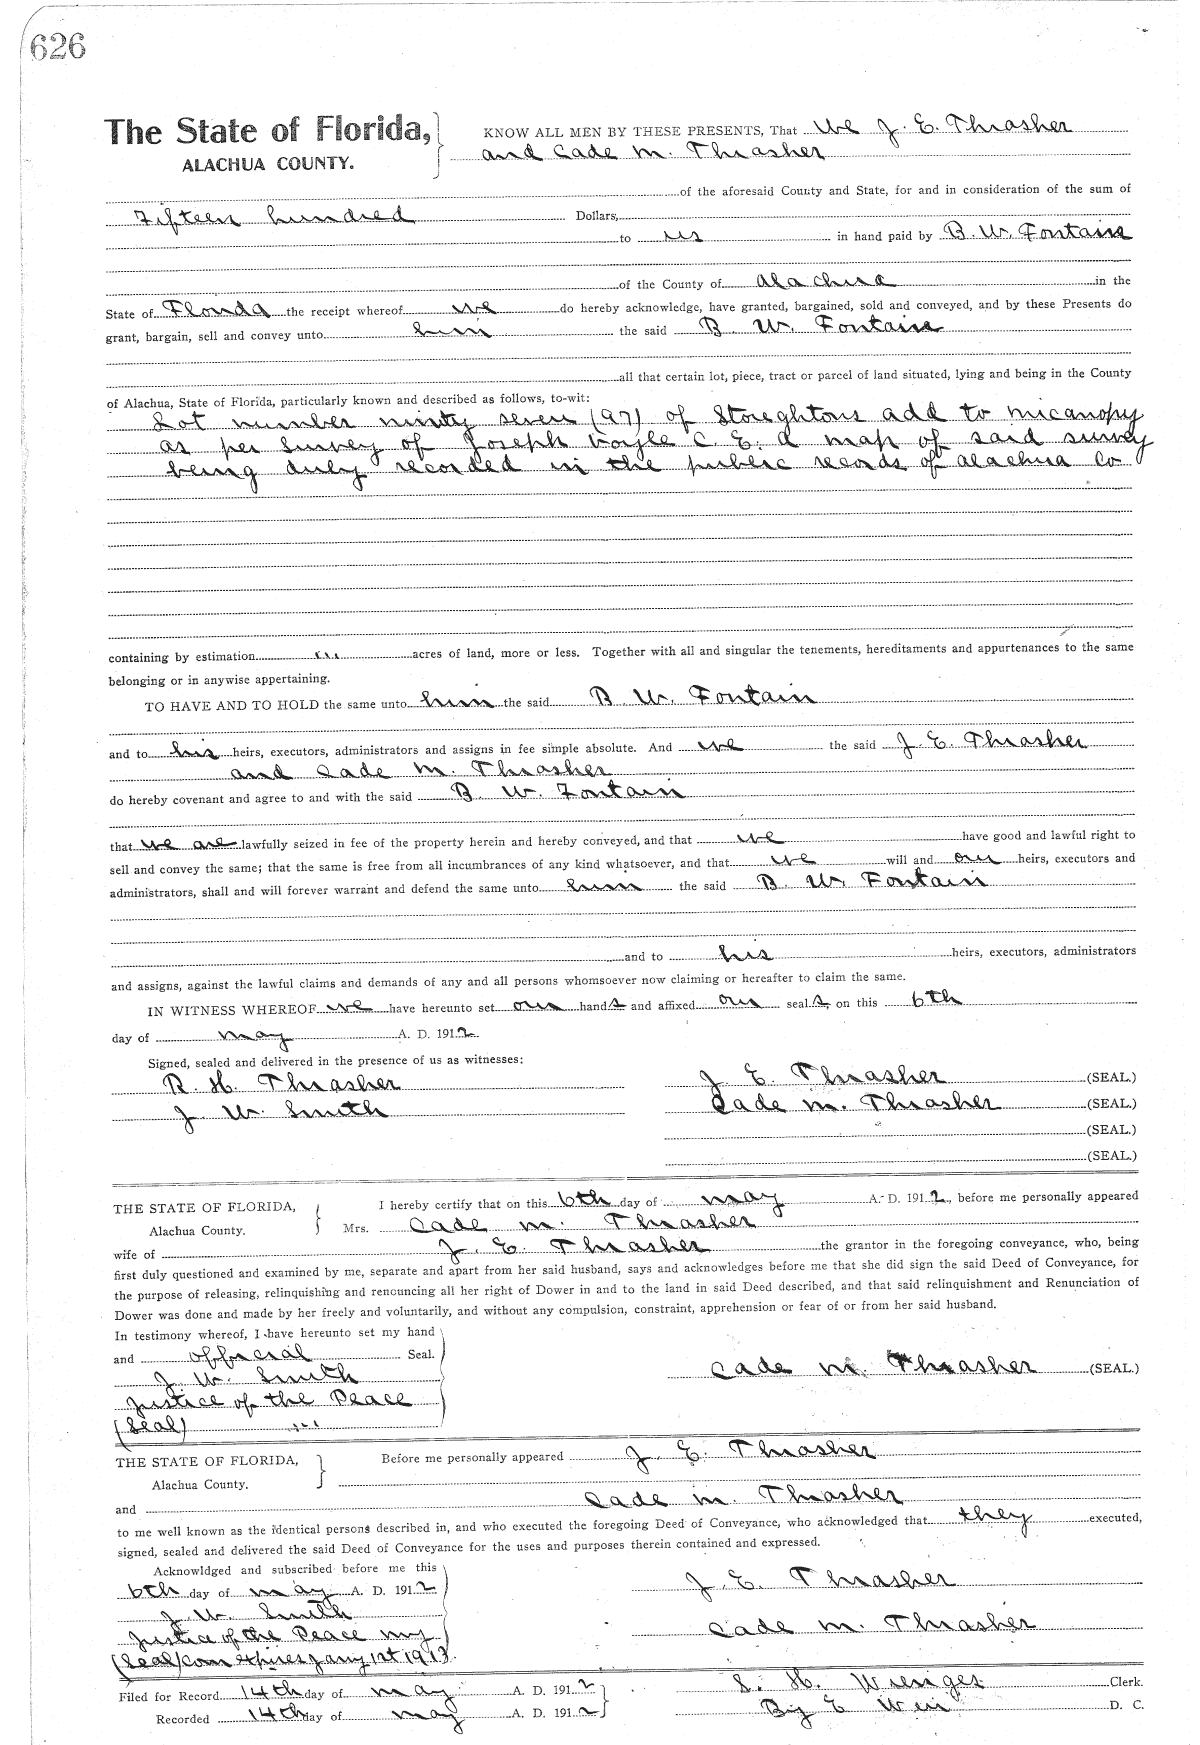 626
The State of Florida, KNOW ALL MEN BY THESE PRESENTS, That We J. E. Thrasher
ALACHUA COUNTY. and Cade M. Thrasher
of the aforesaid County and State, for and in consideration of the sum of
Fifteen hundred Dollars,
to us in hand paid by B. W. Fontain
of the County of Alachua in the
State of Florida the receipt whereof we do hereby acknowledge, have granted, bargained, sold and conveyed, and by these Presents do
grant, bargain, sell and convey unto him the said B. W. Fontain
all that certain lot, piece, tract or parcel of land situated, lying and being in the County
of Alachua, State of Florida, particularly known and described as follows, to-wit:
Lot number ninty seven (97) of Stoughtons add to Micanopy
as per Survey of Joseph Voyle C. E. a map of said survey
being duly recorded in the public records of Alachua Co
containing by estimation acres of land, more or less. Together with all and singular the tenements, hereditaments and appurtenances to the same
belonging or in anywise appertaining.
TO HAVE AND TO HOLD the same unto him the said B. W. Fontain
and to his heirs, executors, administrators and assigns in fee simple absolute. And we the said J. E. Thrasher
and Cade M. Thrasher
do hereby covenant and agree to and with the said B. W. Fontain
that we are lawfully seized in fee of the property herein and hereby conveyed, and that we have good and lawful right to
sell and convey the same; that the same is free from all incumbrances of any kind whatsoever, and that we will and our heirs, executors and
administrators, shall and will forever warrant and defend the same unto him the said B. W. Fontain
and to his heirs, executors, administrators
and assigns, against the lawful claims and demands of any and all persons whomsoever now claiming or hereafter to claim the same.
IN WITNESS WHEREOF we have hereunto set our hands and affixed our seals, on this 6th
day of May A. D. 1912
Signed, sealed and delivered in the presence of us as witnesses:
R. H. Thrasher J E. Thrasher (SEAL.)
J W. Smith Cade M. Thrasher (SEAL.)
(SEAL.)
(SEAL.)
THE STATE OF FLORIDA, I hereby certify that on this 6th day of May A. D. 1912, before me personally appeared
Alachua County. Mrs. Cade M. Thrasher
wife of J. E. Thrasher the grantor in the foregoing conveyance, who, being
first duly questioned and examined by me, separate and apart from her said husband, says and acknowledges before me that she did sign the said Deed of Conveyance, for
the purpose of releasing, relinquishing and renouncing all her right of Dower in and to the land in said Deed described, and that said relinquishment and Renunciation of
Dower was done and made by her freely and voluntarily, and without any compulsion, constraint, apprehension or fear of or from her said husband.
In testimony whereof, I have hereunto set my hand
and official Seal. Cade M. Thrasher (SEAL.)
J. W. Smith
Justice of the Peace
(Seal)
THE STATE OF FLORIDA, Before me personally appeared J. E. Thrasher
Alachua County.
and Cade M. Thrasher
to me well known as the identical persons described in, and who executed the foregoing Deed of Conveyance, who acknowledged that they executed,
signed, sealed and delivered the said Deed of Conveyance for the uses and purposes therein contained and expressed.
Acknowldged and subscribed before me this
6th day of May A. D. 1912 J. E. Thrasher
J. W. Smith
Justice of the Peace my Cade M. Thrasher
(Seal) com expires Jany 1st 1913.
Filed for Record 14th day of May A. D. 1912 S. H. Wienges Clerk.
Recorded 14th day of May A. D. 1912 By E D. C.